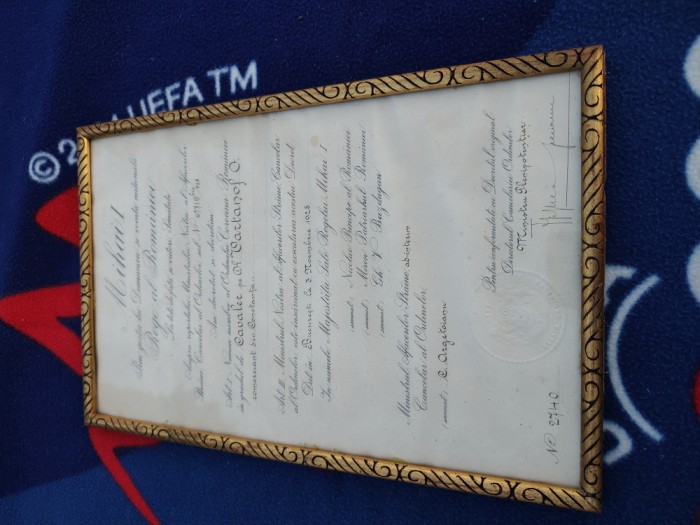 Mihai I
Prin grația lui Dumnezeu și voința națională
Rege al României
La toți de față și viitori, Sănătate
Asupra raportului Ministrului Nostru al Afacerilor
Străine, Cancelar al Ordinelor sub No.
Am decretat și decretăm
Art. I. Numim membru al Ordinului Coroana României
în gradul de Cavaler pe Dl Vartanof O.
comerciant din Constanța.
Art. II. Ministrul Nostru al Afacerilor Străine, Cancelar
al Ordinelor, este însărcinat cu executarea acestui Decret.
Dat în București la 3 Noembrie 1928
In numele Majestății Sale Regelui Mihai I
(semnat) Nicolae Principe al României
(semnat) Miron Patriarhul României
(semnat) Gh. V. Buzdugan
Ministrul Afacerilor Străine, ad-interim
Cancelar al Ordinelor,
(semnat) C. Argetoianu
Pentru conformitate cu Decretul original
Directorul Cancelariei Ordinelor
Ministru Plenipotențiar
No 2740
© UEFA TM